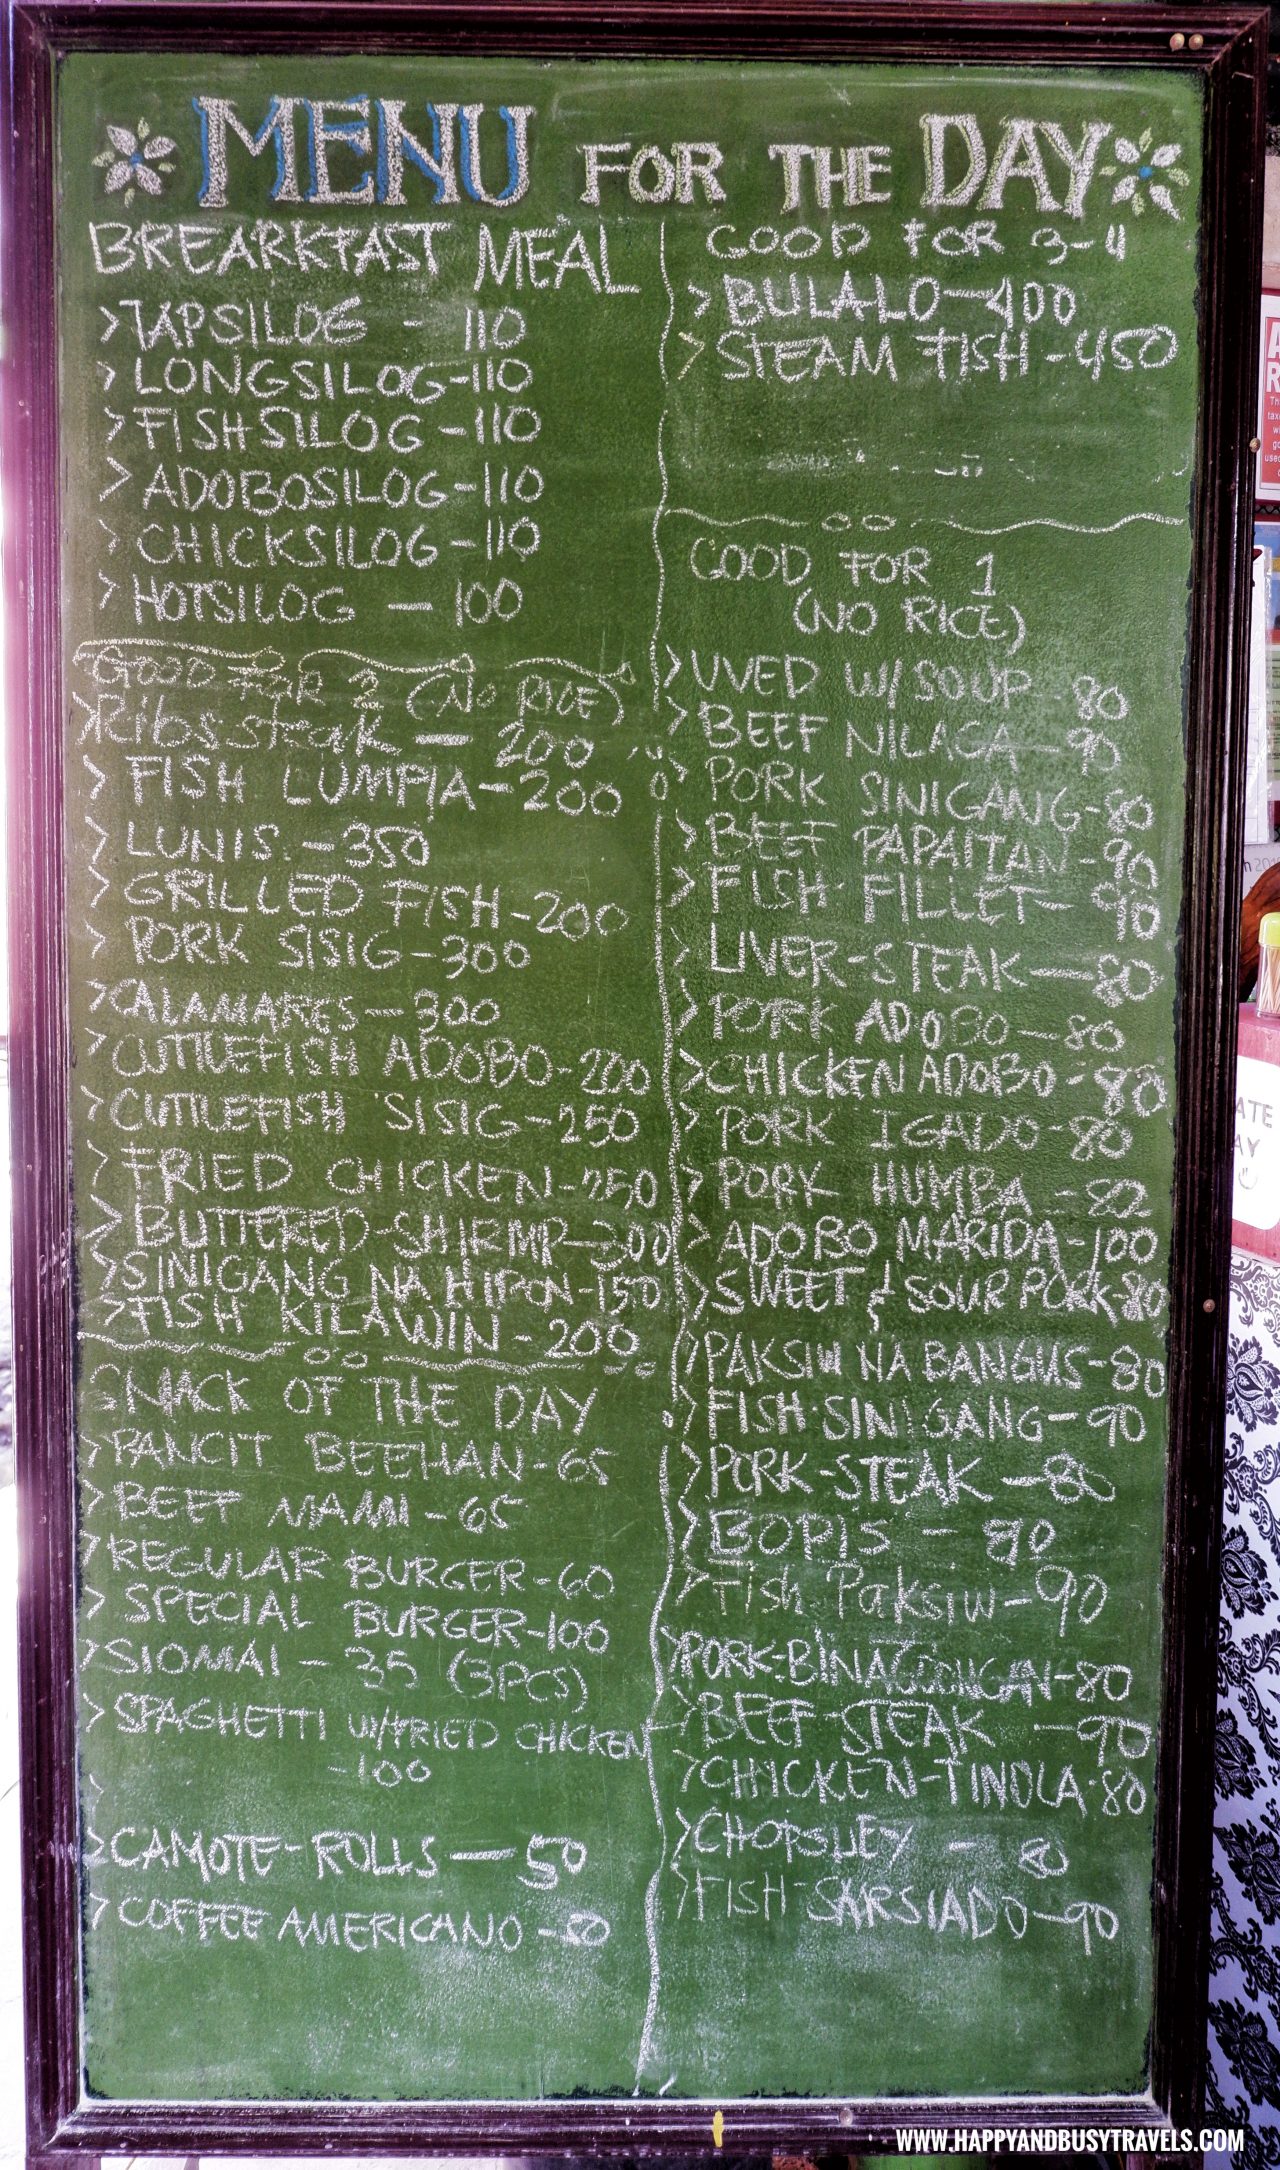 MENU FOR THE DAY
BREAKFAST MEAL
>TAPSILOG - 110
>LONGSILOG-110
>FISHSILOG-110
>ADOBOSILOG-110
>CHICKSILOG-110
>HOTSILOG - 100
GOOD FOR 2 (NO RICE)
>Ribssteak - 200
>FISH LUMPIA-200
>LUNIS.-350
>GRILLED FISH-200
>PORK SISIG-300
>CALAMARES-300
>CUTTLEFISH ADOBO-200
>CUTTLEFISH SISIG-250
>FRIED CHICKEN-250
>BUTTERED-SHIRMP-300
>SINIGANG NA HIPON-150
>FISH KILAWIN-200
SNACK OF THE DAY
>PANCIT BEEHAN-65
>BEEF MAMI-65
>REGULAR BURGER-60
>SPECIAL BURGER-100
>SIOMAI-35 (3PCS)
>SPAGHETTI W/FRIED CHICKEN
-100
>
>CAMOTE-ROLLS-50
>COFFEE AMERICANO-80
GOOD FOR 3-4
>BULALO-400
>STEAM FISH-450
GOOD FOR 1
(NO RICE)
>UVED W/SOUP-80
>BEEF NILAGA-90
>PORK SINIGANG-80
>BEEF PAPAITAN-90
>FISH FILLET-90
>LIVER-STEAK-80
>PORK ADOBO-80
>CHICKEN ADOBO-80
>PORK IGADO-80
>PORK HUMBA-80
>ADOBO MARIDA-100
>SWEET & SOUR PORK-80
>PAKSIW NA BANGUS-80
>FISH SINIGANG-90
>PORK-STEAK-80
>BOPIS-80
>Fish Paksiw-90
>PORK-BINAGOONGAN-80
>BEEF-STEAK-90
>CHICKEN-TINOLA-80
>CHOPSUEY-80
>FISH-SARSIADO-90
WWW.HAPPYANDBUSYTRAVELS.COM